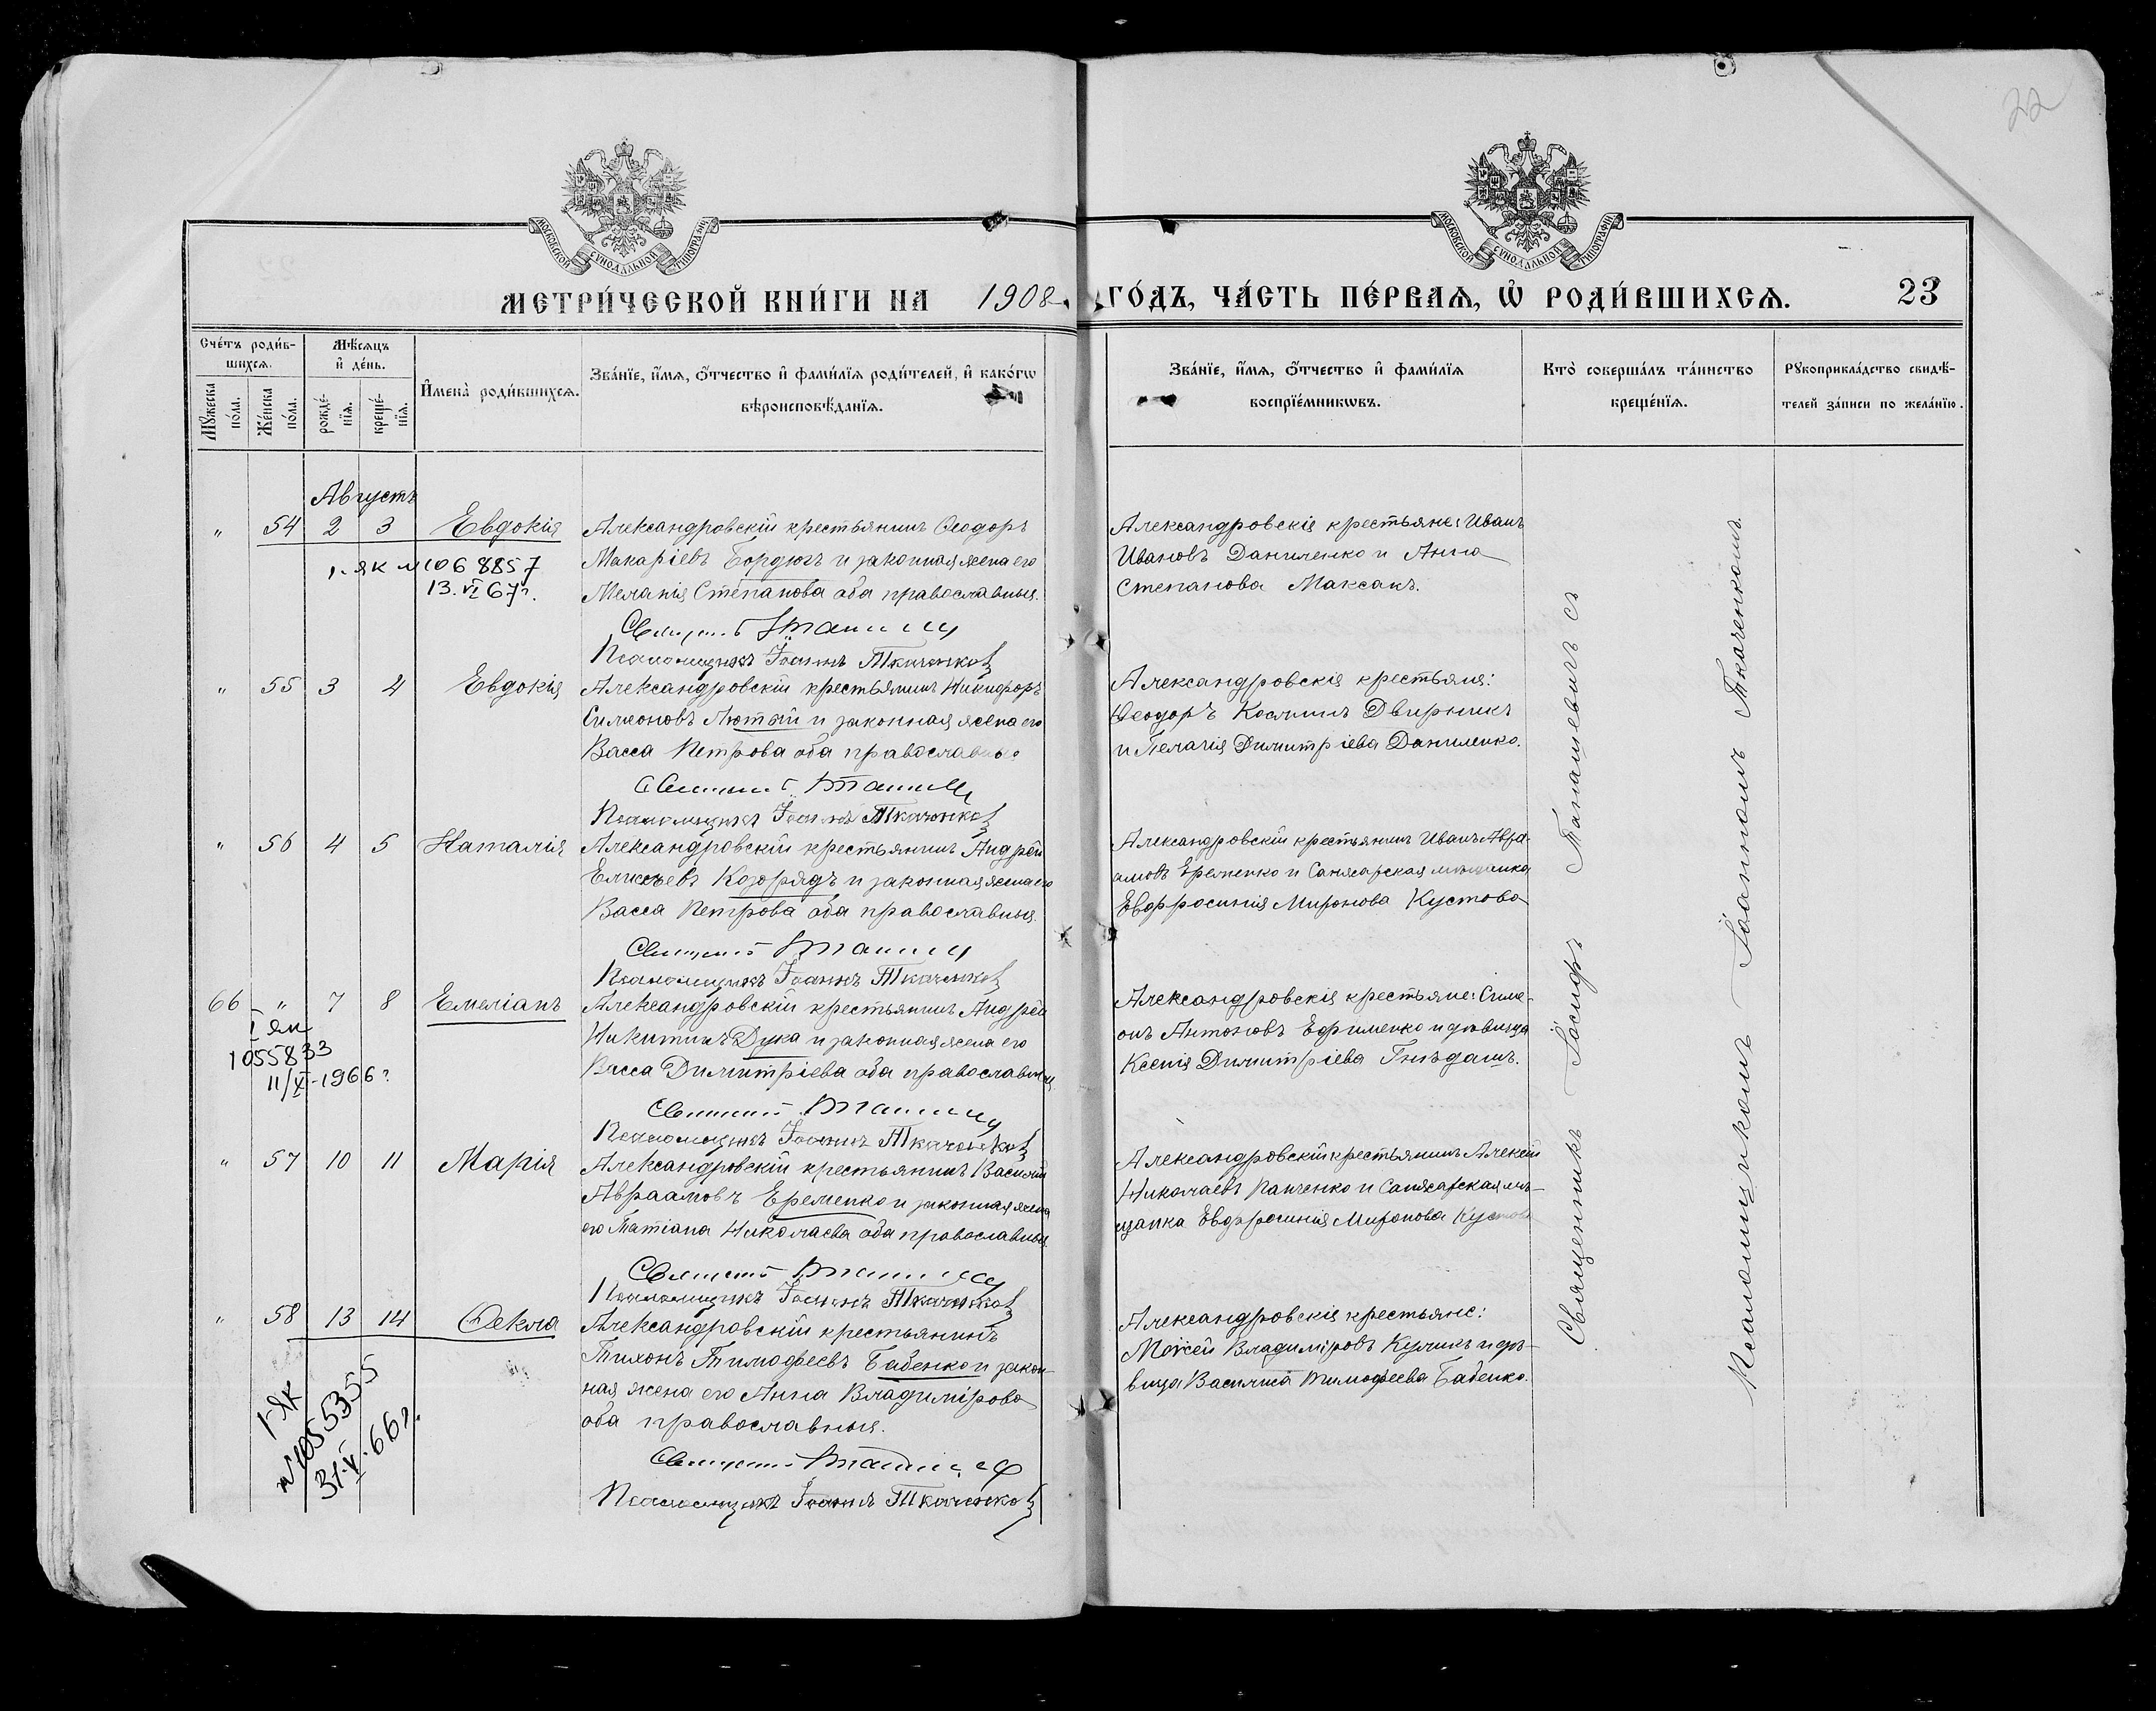 22
МОСКОВСКОЙ СѴНОДАЛЬНОЙ ТИПОГРАФІИ
МОСКОВСКОЙ СѴНОДАЛЬНОЙ ТИПОГРАФІИ
МЕТРИ́ЧЕСКОЙ КНИ́ГИ НА 1908
ГО́ДЪ, ЧА́СТЬ ПЕ́РВАѦ, Ѽ РОДИ́ВШИХСѦ. 23
Сче́тъ роди́в-
шихсѧ.
Мꙋ́жеска по́ла.
Же́нска по́ла.
Мѣ́сѧцъ
и҆ де́нь.
рожде́-
нїѧ.
креще́-
нїѧ.
И҆мена̀ роди́вшихсѧ.
Зва́нїе, и҆́мѧ, ѻ҆́тчество и҆ фами́лїѧ роди́телей, и҆ како́гѡ
вѣроисповѣ́данїѧ.
Зва́нїе, и҆́мѧ, ѻ҆́тчество и҆ фами́лїѧ
воспрїе́мникѡвъ.
Кто̀ соверша́лъ та́инство
креще́нїѧ.
Рꙋкоприкла́дство свидѣ́-
телей за́писи по жела́нїю.
Августъ
" 54 2 3 Евдокія
Александровскій крестьянинъ Ѳеодоръ
Макаріевъ Бордюгъ и законная жена его
Меланія Степанова оба православныя.
Псаломщикъ Іоаннъ Ткаченко
1-ЯК № 1068857
13.VI 67г.
Александровскія крестьяне: Иванъ
Ивановъ Даниленко и Анна
Степанова Максакъ.
" 55 3 4 Евдокія
Александровскій крестьянинъ Никифоръ
Симеоновъ Лютый и законная жена его
Васса Петрова оба православныя
Псаломщикъ Іоаннъ Ткаченко
Александровскія крестьяня:
Ѳеодоръ Косминъ Двирникъ
и Пелагія Димитріева Даниленко.
" 56 4 5 Наталія
Александровскій крестьянинъ Андрей
Елисѣевъ Козорядъ и законная жена его
Васса Петрова оба православныя
Псаломщикъ Іоаннъ Ткаченко
Александровскій крестьянинъ Иванъ Авра-
амовъ Еременко и Санжарская мѣщанка
Евфросинія Миронова Кустова
66 " 7 8 Емеліанъ
Александровскій крестьянинъ Андрей
Никитинъ Дука и законная жена его
Васса Димитріева оба православныя
Псаломщикъ Іоаннъ Ткаченко
I ЯК
1055833
11/XI-1966г
Александровскія крестьяне: Симе-
онъ Антоновъ Ефименко и дѣвица
Ксенія Димитріева Гнѣдашъ.
" 57 10 11 Марія
Александровскій крестьянинъ Василій
Авраамовъ Еременко и законная жена
его Татіана Николаева оба православныя.
Псаломщикъ Іоаннъ Ткаченко
Александровскій крестьянинъ Алексій
Николаевъ Панченко и Санжарская мѣ-
щанка Евфросинія Миронова Кустова
" 58 13 14 Ѳекла
Александровскій крестьянинъ
Тихонъ Тимофеевъ Бабенко и закон-
ная жена его Анна Владимірова
оба православныя.
Псаломщикъ Іоаннъ Ткаченко
1-ЯК
№1055355
31.V.66г.
Александровскія крестьяне:
Моѵсей Владиміровъ Куликъ и дѣ-
вица Василиса Тимофеева Бабенко.
Священникъ Іосифъ Танашевичъ съ
Псаломщикомъ Іоанномъ Ткаченкомъ